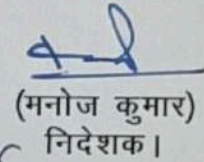 (मनोज कुमार)
निदेशक।